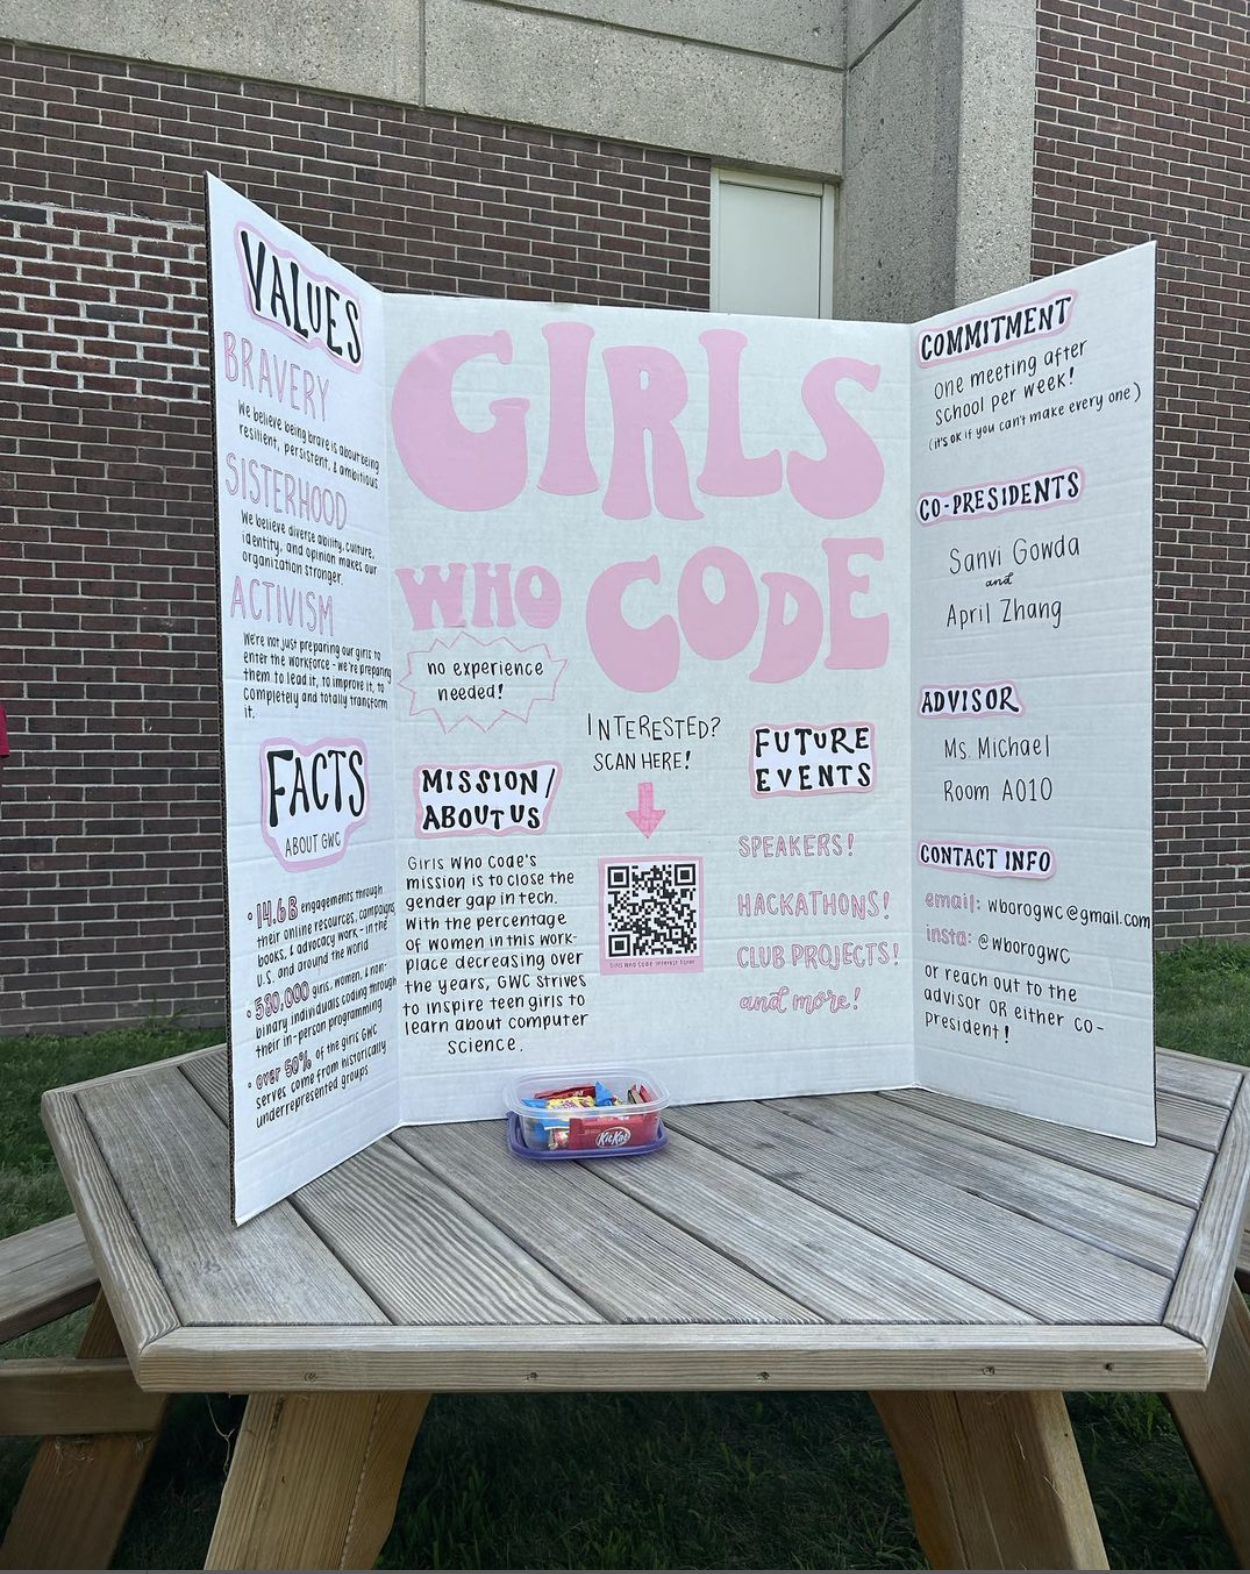 VALUES
BRAVERY
We believe being brave is about being
resilient, persistent, & ambitious
SISTERHOOD
We believe diverse ability, culture,
identity, and opinion makes our
organization stronger.
ACTIVISM
We're not just preparing our girls to
enter the workforce - we're preparing
them to lead it, to improve it, to
completely and totally transform
it.
FACTS
ABOUT GWC
• 14.6B engagements through
their online resources, campaigns,
books, & advocacy work - in the
U.S. and around the world
• 580,000 girls, women, & non-
binary individuals coding through
their in-person programming
• over 50% of the girls GWC
serves come from historically
underrepresented groups
GIRLS
WHO CODE
no experience
needed!
MISSION/
ABOUT US
Girls Who Code's
mission is to close the
gender gap in tech.
With the percentage
of women in this work-
place decreasing over
the years, GWC strives
to inspire teen girls to
learn about computer
science.
INTERESTED?
SCAN HERE!
Girls Who Code Interest Form
FUTURE
EVENTS
SPEAKERS!
HACKATHONS!
CLUB PROJECTS!
and more!
COMMITMENT
one meeting after
school per week!
(it's ok if you can't make every one)
CO-PRESIDENTS
Sanvi Gowda
and
April Zhang
ADVISOR
Ms. Michael
Room A010
CONTACT INFO
email: wborogwc@gmail.com
insta: @wborogwc
or reach out to the
advisor OR either co-
president!
KitKat